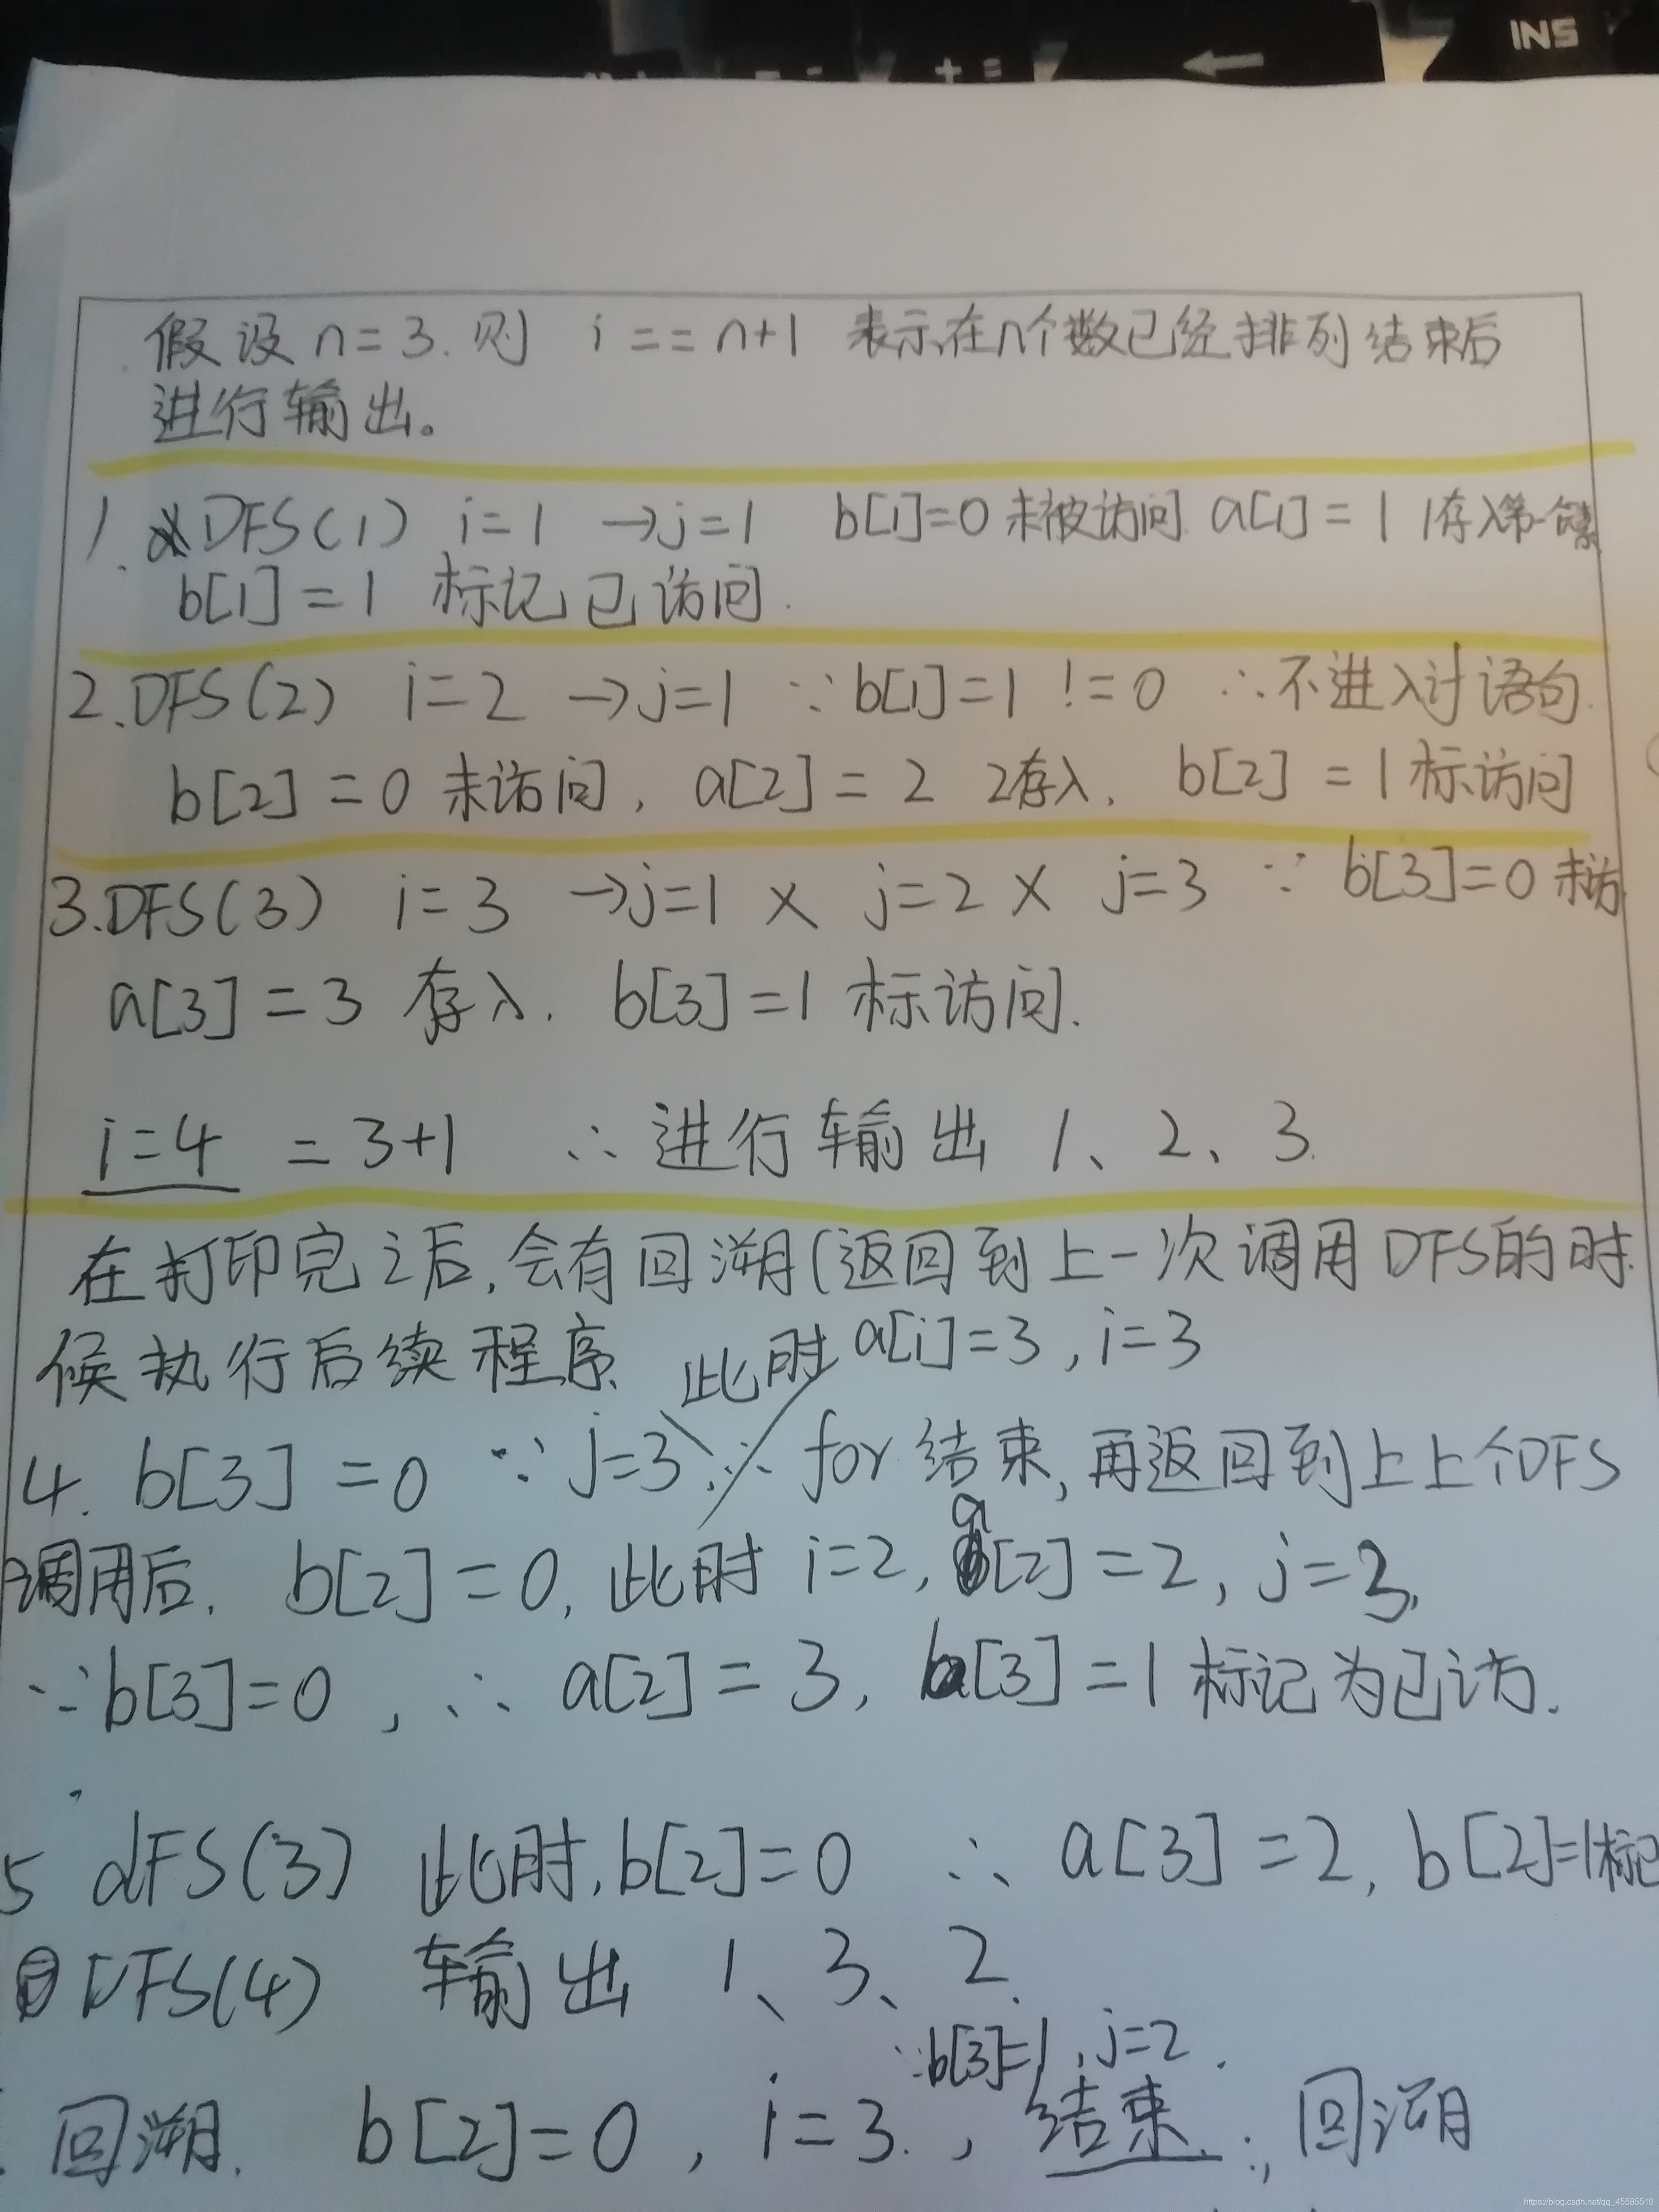 INS
假设n=3.则 i==n+1 表示在n个数已经排列结束后
进行输出。
1. DFS(1) i=1 →j=1 b[1]=0未被访问. a[1]=1 1存入第一个
b[1]=1 标记已访问.
2.DFS(2) i=2 →j=1 ∵b[1]=1 !=0 ∴不进入讨语句.
b[2]=0 未访问, a[2]=2 2存入, b[2]=1标访问
3.DFS(3) i=3 →j=1 × j=2 × j=3 ∵ b[3]=0 未访
a[3]=3 存入. b[3]=1 标访问.
i=4 =3+1 ∴进行输出 1、2、3.
在打印完之后,会有回溯(返回到上一次调用DFS的时
候执行后续程序. 此时a[i]=3,i=3
4. b[3]=0 ∵j=3 ∴ for结束,再返回到上上个DFS
调用后. b[2]=0,此时 i=2,a[2]=2,j=3,
∵b[3]=0,∴ a[2]=3,b[3]=1标记为已访.
5 dFS(3) 此时,b[2]=0 ∴ a[3]=2,b[2]=1标记
DFS(4) 输出 1、3、2.
∵b[3]=1,j=2.
回溯. b[2]=0,i=3.,结束.∴回溯
https://blog.csdn.net/qq_45585519